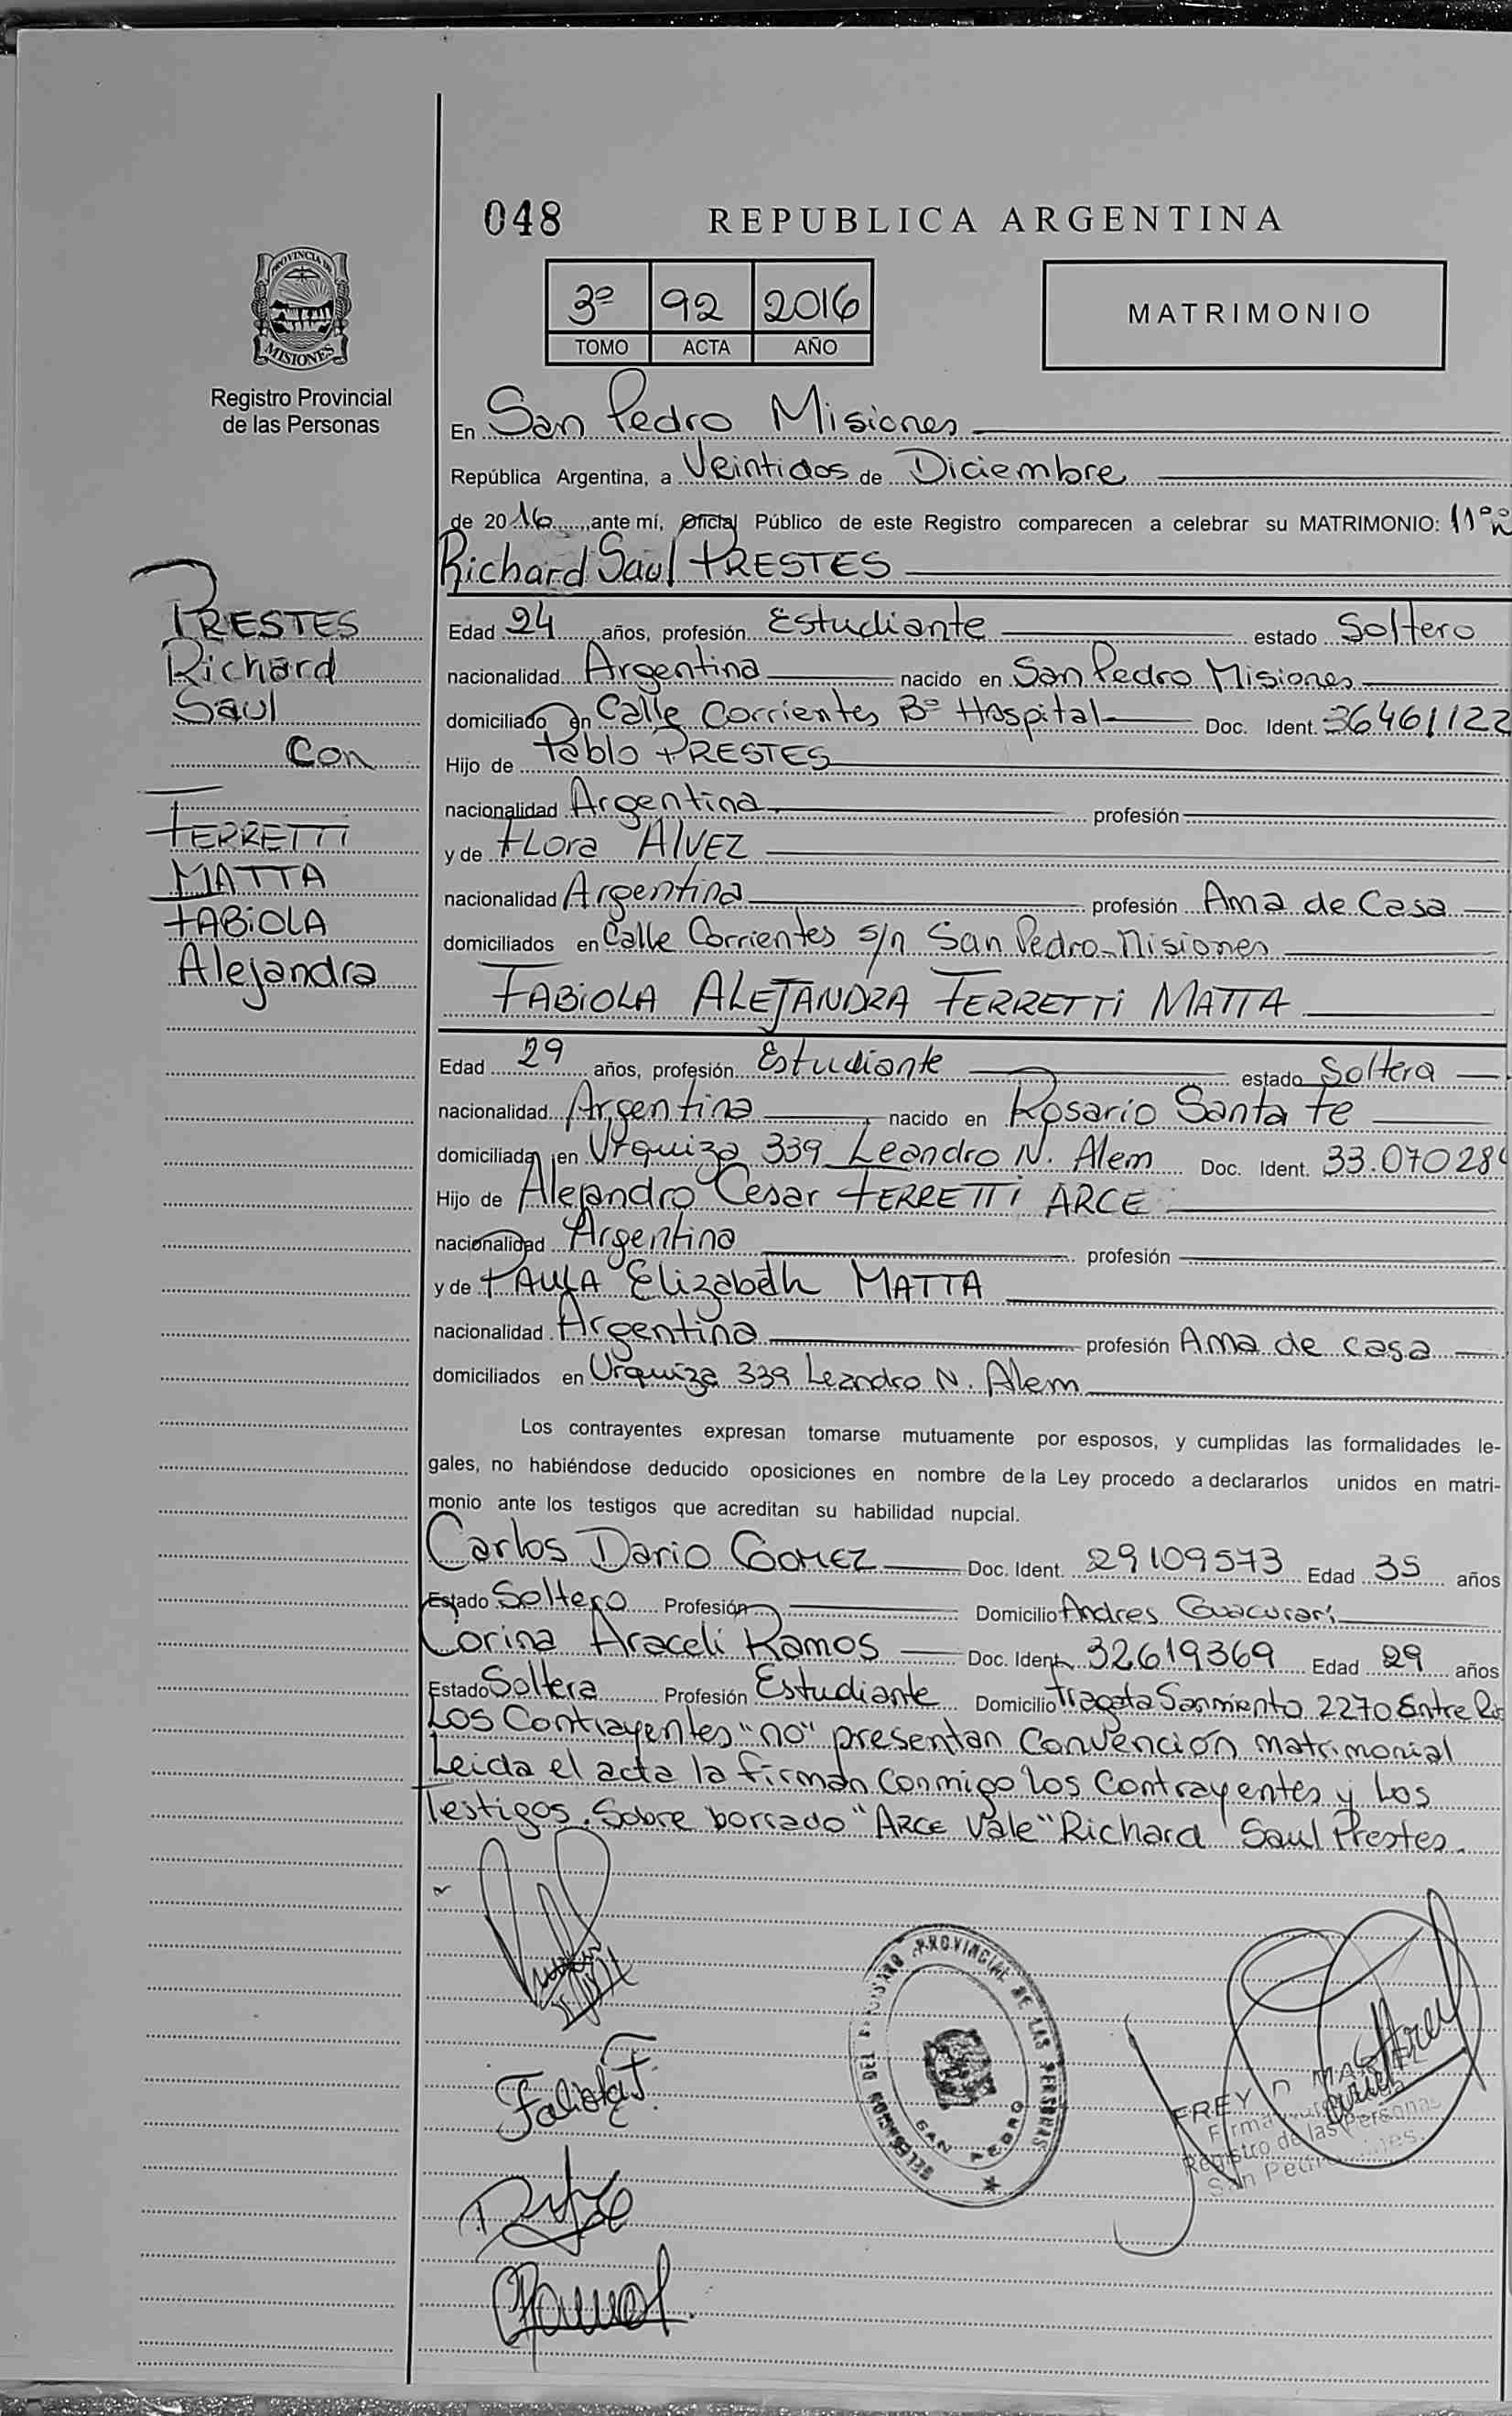 048
REPUBLICA ARGENTINA
3º 92 2016
TOMO ACTA AÑO
MATRIMONIO
PROVINCIA DE
MISIONES
Registro Provincial
de las Personas
En San Pedro Misiones
República Argentina, a Veintidos de Diciembre
de 2016, ante mí, Oficial Público de este Registro comparecen a celebrar su MATRIMONIO: 11ºº
Richard Saul PRESTES
PRESTES
Richard
Saul
con
FERRETTI
MATTA
FABIOLA
Alejandra
Edad 24 años, profesión Estudiante estado Soltero
nacionalidad Argentina nacido en San Pedro Misiones
domiciliado en Calle Corrientes Bº Hospital Doc. Ident. 36461122
Hijo de Pablo PRESTES
nacionalidad Argentina profesión
y de FLora ALVEZ
nacionalidad Argentina profesión Ama de Casa
domiciliados en Calle Corrientes s/n San Pedro-Misiones
FABIOLA ALEJANDRA FERRETTI MATTA
Edad 29 años, profesión Estudiante estado Soltera
nacionalidad Argentina nacido en Rosario Santa Fe
domiciliada en Urquiza 339 Leandro N. Alem Doc. Ident. 33.070284
Hijo de Alejandro Cesar FERRETTI ARCE
nacionalidad Argentina profesión
y de PAULA Elizabeth MATTA
nacionalidad Argentina profesión Ama de casa
domiciliados en Urquiza 339 Leandro N. Alem
Los contrayentes expresan tomarse mutuamente por esposos, y cumplidas las formalidades le-
gales, no habiéndose deducido oposiciones en nombre de la Ley procedo a declararlos unidos en matri-
monio ante los testigos que acreditan su habilidad nupcial.
Carlos Dario GOMEZ Doc. Ident. 29109573 Edad 35 años
Estado Soltero Profesión Domicilio Andres Guacurari
Corina Araceli Ramos Doc. Ident. 32619369 Edad 29 años
Estado Soltera Profesión Estudiante Domicilio Fragata Sarmiento 2270 Entre Rios
Los Contrayentes "no" presentan Convención matrimonial
Leida el acta la firman conmigo los Contrayentes y Los
Testigos. Sobre borrado "ARCE Vale" Richard Saul Prestes.
DELEGACION DEL REGISTRO PROVINCIAL DE LAS PERSONAS
SAN PEDRO
FREY
Registro de las Personas
San Pedro